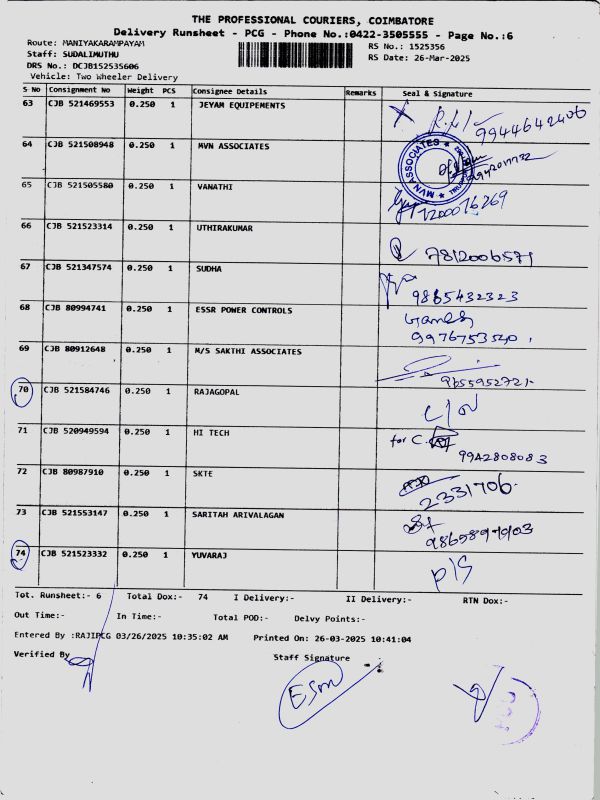 THE PROFESSIONAL COURIERS, COIMBATORE
Delivery Runsheet - PCG - Phone No.:0422-3505555 - Page No.:6
Route: MANIYAKARAMPAYAM
RS No.: 1525356
Staff: SUDALIMUTHU
RS Date: 26-Mar-2025
DRS No.: DCJB152535606
Vehicle: Two Wheeler Delivery
S No Consignment No Weight PCS Consignee Details Remarks Seal & Signature
63 CJB 521469553 0.250 1 JEYAM EQUIPEMENTS 9944642406
64 CJB 521508948 0.250 1 MVN ASSOCIATES MVN ASSOCIATES
65 CJB 521505580 0.250 1 VANATHI 7200016269
66 CJB 521523314 0.250 1 UTHIRAKUMAR 7812006571
67 CJB 521347574 0.250 1 SUDHA 9865432323
68 CJB 80994741 0.250 1 ESSR POWER CONTROLS Ganesh
9976753540
69 CJB 80912648 0.250 1 M/S SAKTHI ASSOCIATES 9655952721
70 CJB 521584746 0.250 1 RAJAGOPAL
71 CJB 520949594 0.250 1 HI TECH for C. 9942808083
72 CJB 80987910 0.250 1 SKTE 2331706
73 CJB 521553147 0.250 1 SARITAH ARIVALAGAN
74 CJB 521523332 0.250 1 YUVARAJ P/S
Tot. Runsheet:- 6 Total Dox:- 74 I Delivery:- II Delivery:- RTN Dox:-
Out Time:- In Time:- Total POD:- Delvy Points:-
Entered By :RAJIPCG 03/26/2025 10:35:02 AM Printed On: 26-03-2025 10:41:04
Verified By Staff Signature
ESM